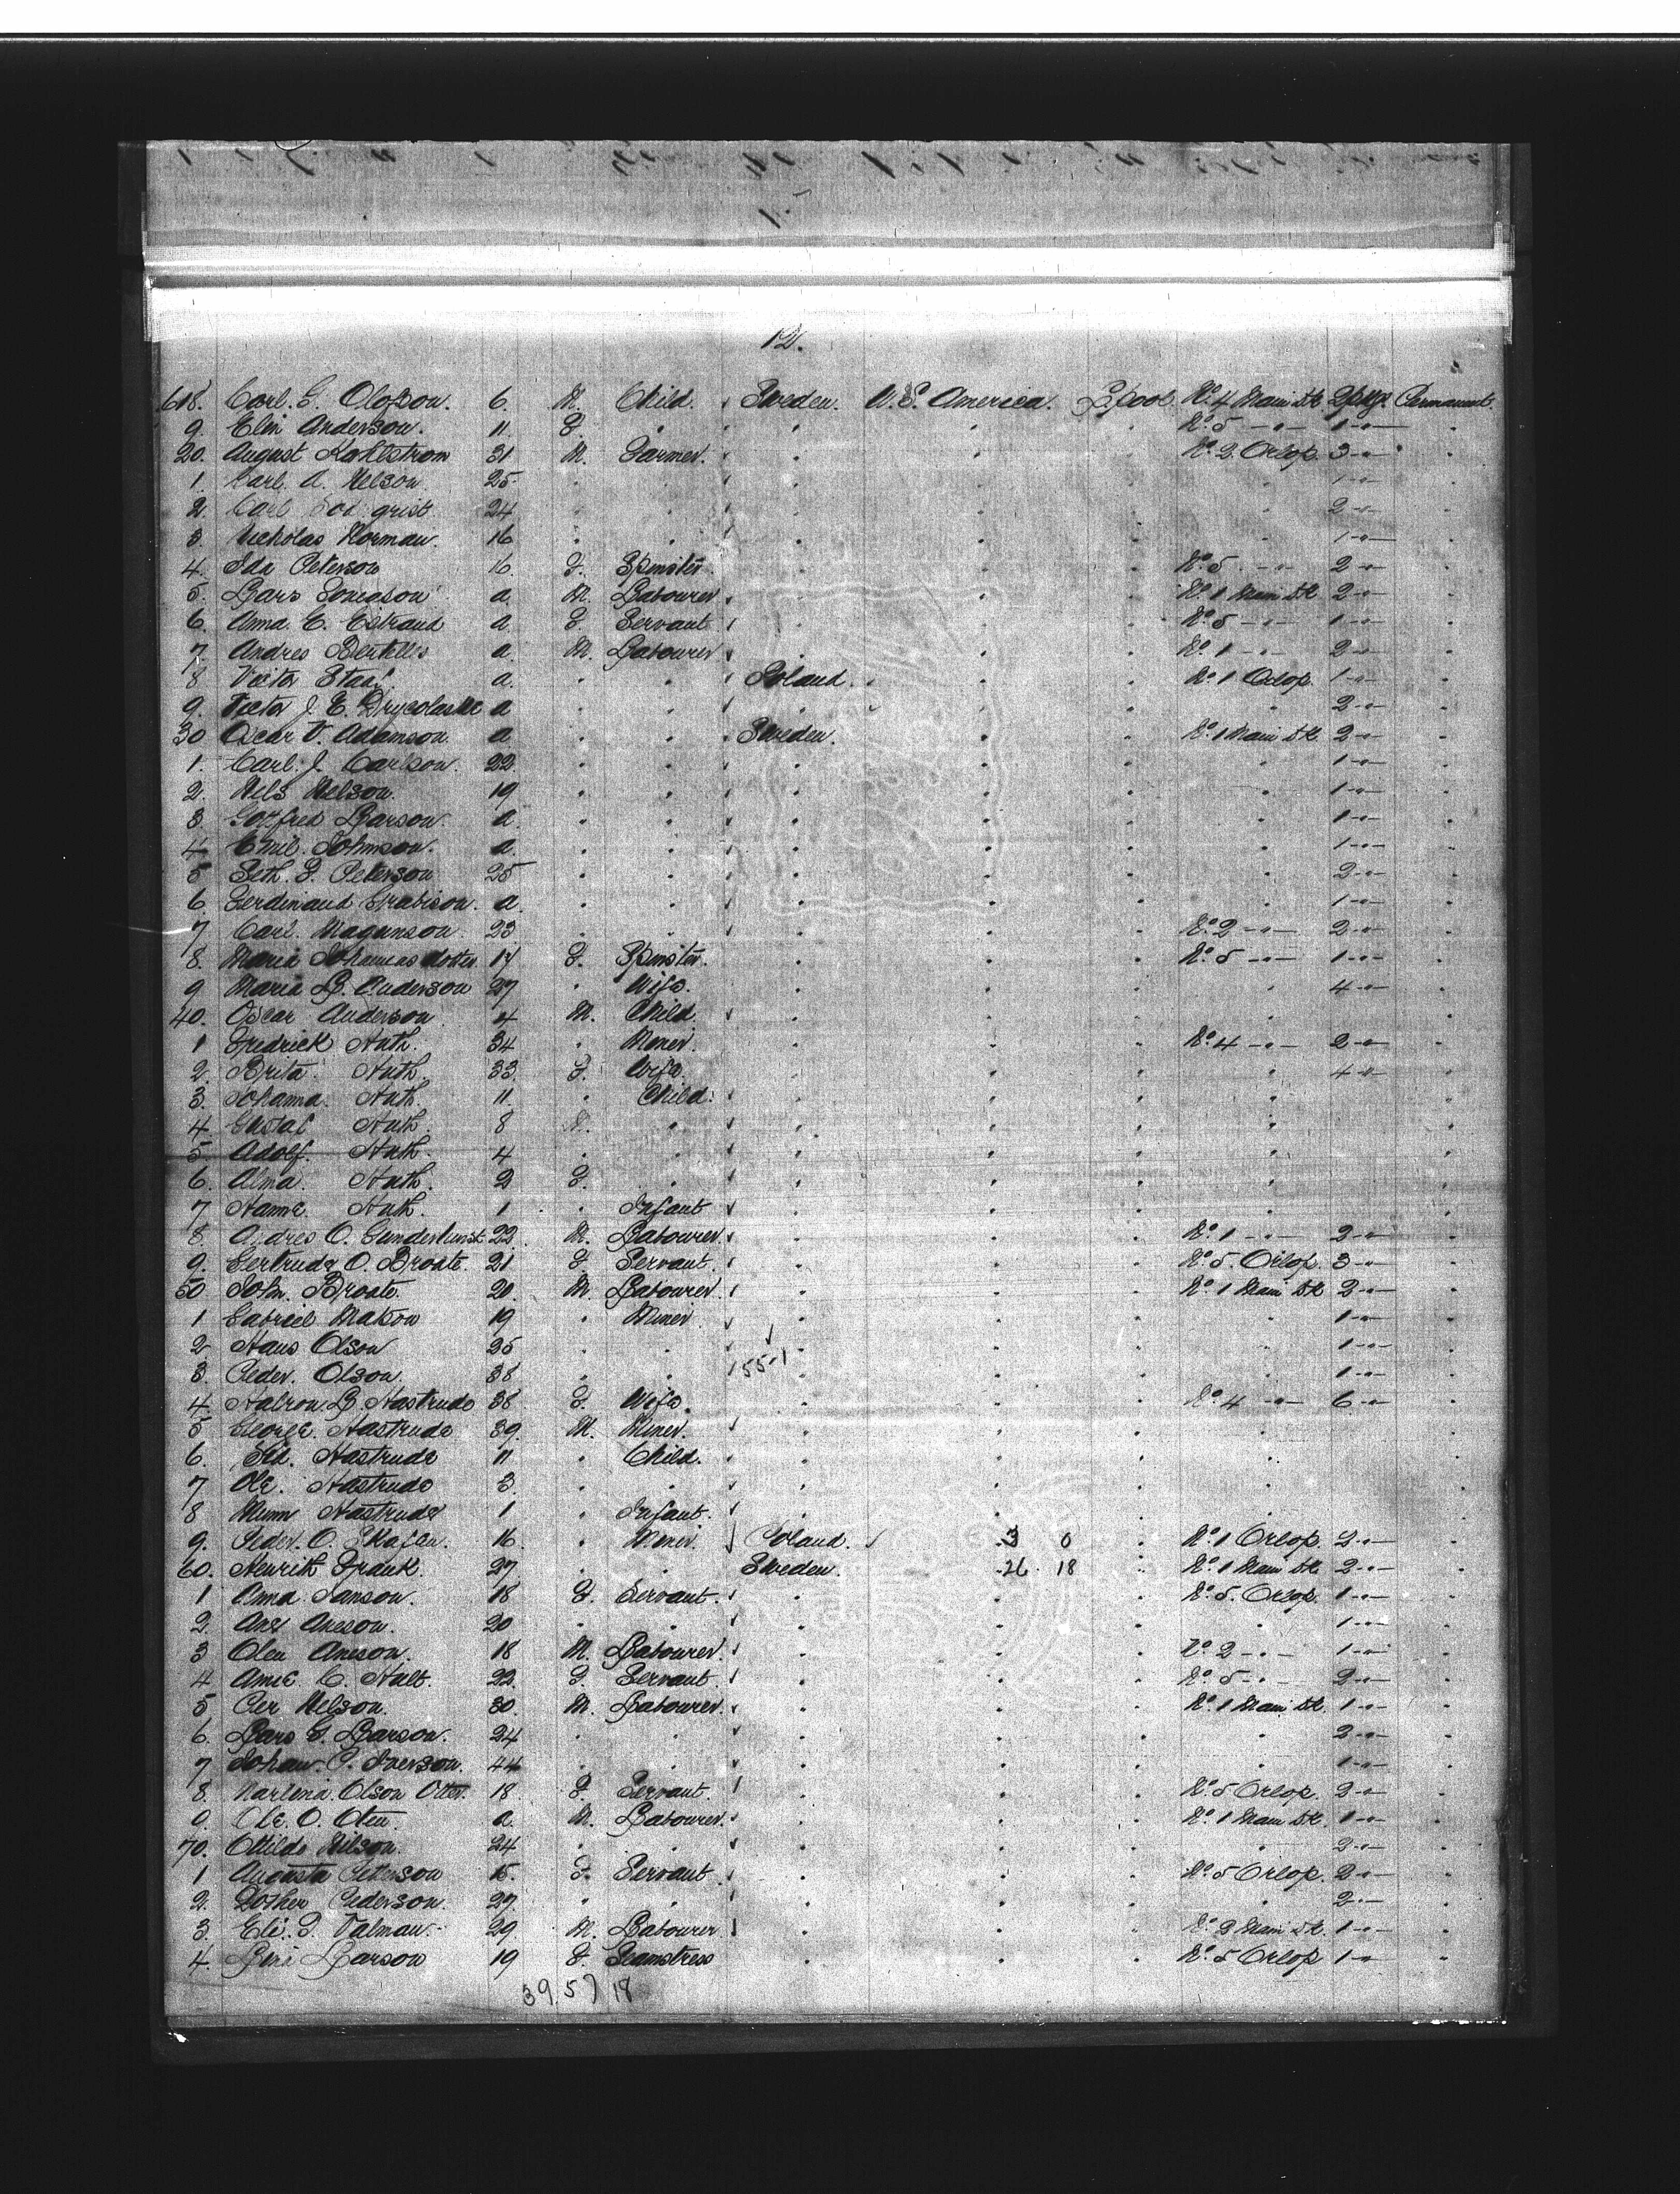 12.
618. Carl. G. Olofson. 6. M. Child. Sweden. U.S. America. L'pool. No. 4 Main Dk 2 pkgs. Permanent.
9. Elin Anderson. 11. F. " " " " No. 5 -"- 1 -"- "
20. August Kohlstrom 31 M. Farmer. " " " No. 2. Orlop. 3 -"- "
1. Carl. A. Nelson. 25 " " " " " " 1 -"- "
2. Carl 24 " " " " " " 2 -"- "
3. Nicholas Norman. 16 " " " " " " 1 -"- "
4. Ida Peterson 16. F. Spinster. " " " No. 5. -"- 2 -"- "
5. Lars a. M. Labourer " " " No. 1 Main Dk 2 -"- "
6. Anna C. a. F. Servant " " " No. 5 -"- 1 -"- "
7. Andres a. M. Labourer " " " No. 1 -"- 2 -"- "
8 Victor a. " " Poland. " " No. 1 Orlop. 1 -"- "
9. Victor J. E. a " " " " " " 2 -"- "
30 Oscar V. Adamson. a " " Sweden. " " No. 1 Main Dk 2 -"- "
1. Carl. J. Carlson. 22. " " " " " " 1 -"- "
2. Nels Nelson. 19 " " " " " " 1 -"- "
3. Gotfred Larson. a. " " " " " " 1 -"- "
4 Emil. Johnson. a. " " " " " " 1 -"- "
5 Seth. P. Peterson 25 " " " " " " 2 -"- "
6. Ferdinand a. " " " " " " 1 -"- "
7 Carl. Maganson. 23 " " " " " No. 2 -"- 2 -"- "
8. Maria 17 F. Spinster. " " " No. 5 -"- 1 -"- "
9 Maria L. Anderson 27 " Wife. " " " " 4 -"- "
40. Oscar Anderson 4 M. Child. " " " " " "
1 Fredrick Huth. 34 " Miner. " " " No. 4 -"- 2 -"- "
2. Brita. Huth. 33. F. Wife. " " " " 4 -"- "
3. Johanna. Huth. 11. " Child. " " " " "
4 Gustaf Huth. 8 M. " " " " " "
5 Adolf. Huth. 4 " " " " " "
6. Alma. Huth. 2 F. " " " " " "
7 Hanna. Huth. 1 " Infant " " " " "
8. Andres O. 22. M. Labourer. " " " No. 1 -"- 2 -"- "
9. Gertrude O. Broate. 21 F Servant. " " " No. 5. Orlop. 3 -"- "
50 John. Broate. 20. M. Labourer. " " " No. 1 Main Dk 2 -"- "
1 Gabriel Matson 19 " Miner " " " " 1 -"- "
2 Hans Olson 25 " " " " " " 1 -"- "
3. Peder. Olson. 38 " " 155-1 " " " 1 -"- "
4. L. Hastrude 38 F. Wife. " " " No. 4 -"- 6 -"- "
5 George. Hastrude 39. M. Miner. " " " " "
6. Hastrude 11 " Child. " " " " "
7 Ole. Hastrude 3. " " " " " "
8 Hastrude 1 " Infant. " " " " "
9. Peder. O. 16. " Miner. Poland. 3 0 " No. 1 Orlop. 2 -"- "
60. Henrik Frank. 27 " " Sweden. 26 18 " No. 1 Main Dk 2 -"- "
1 Anna Janson. 18 F. Servant. " " " No. 5. Orlop. 1 -"- "
2. Aneson. 20 " " " " " " 1 -"- "
3 Olen Aneson. 18 M. Labourer. " " " No. 2 -"- 1 -"- "
4 C. Hult. 22. F. Servant. " " " No. 5 -"- 2 -"- "
5 Per Nelson. 30. M. Labourer. " " " No. 1 Main Dk. 1 -"- "
6. Lars G. Larson. 24 " " " " " " 2 -"- "
7 Johan P. Iverson. 44 " " " " " " 1 -"- "
8. Olson Otter. 18. F. Servant. " " " No. 5 Orlop. 2 -"- "
9. Ole. O. Olen. a. M. Labourer. " " " No. 1 Main Dk. 1 -"- "
70. Nilson. 24 " " " " " " 2 -"- "
1 Augusta Peterson 15. F. Servant. " " " No. 5 Orlop. 2 -"- "
2. Pederson. 27. " " " " " " 2 -"- "
3. Eli. P. Valman. 29. M. Labourer " " " No. 2 Main Dk. 1 -"- "
4. Larson 19 F. Seamstress " " " No. 5 Orlop 1 -"- "
39. 57 18